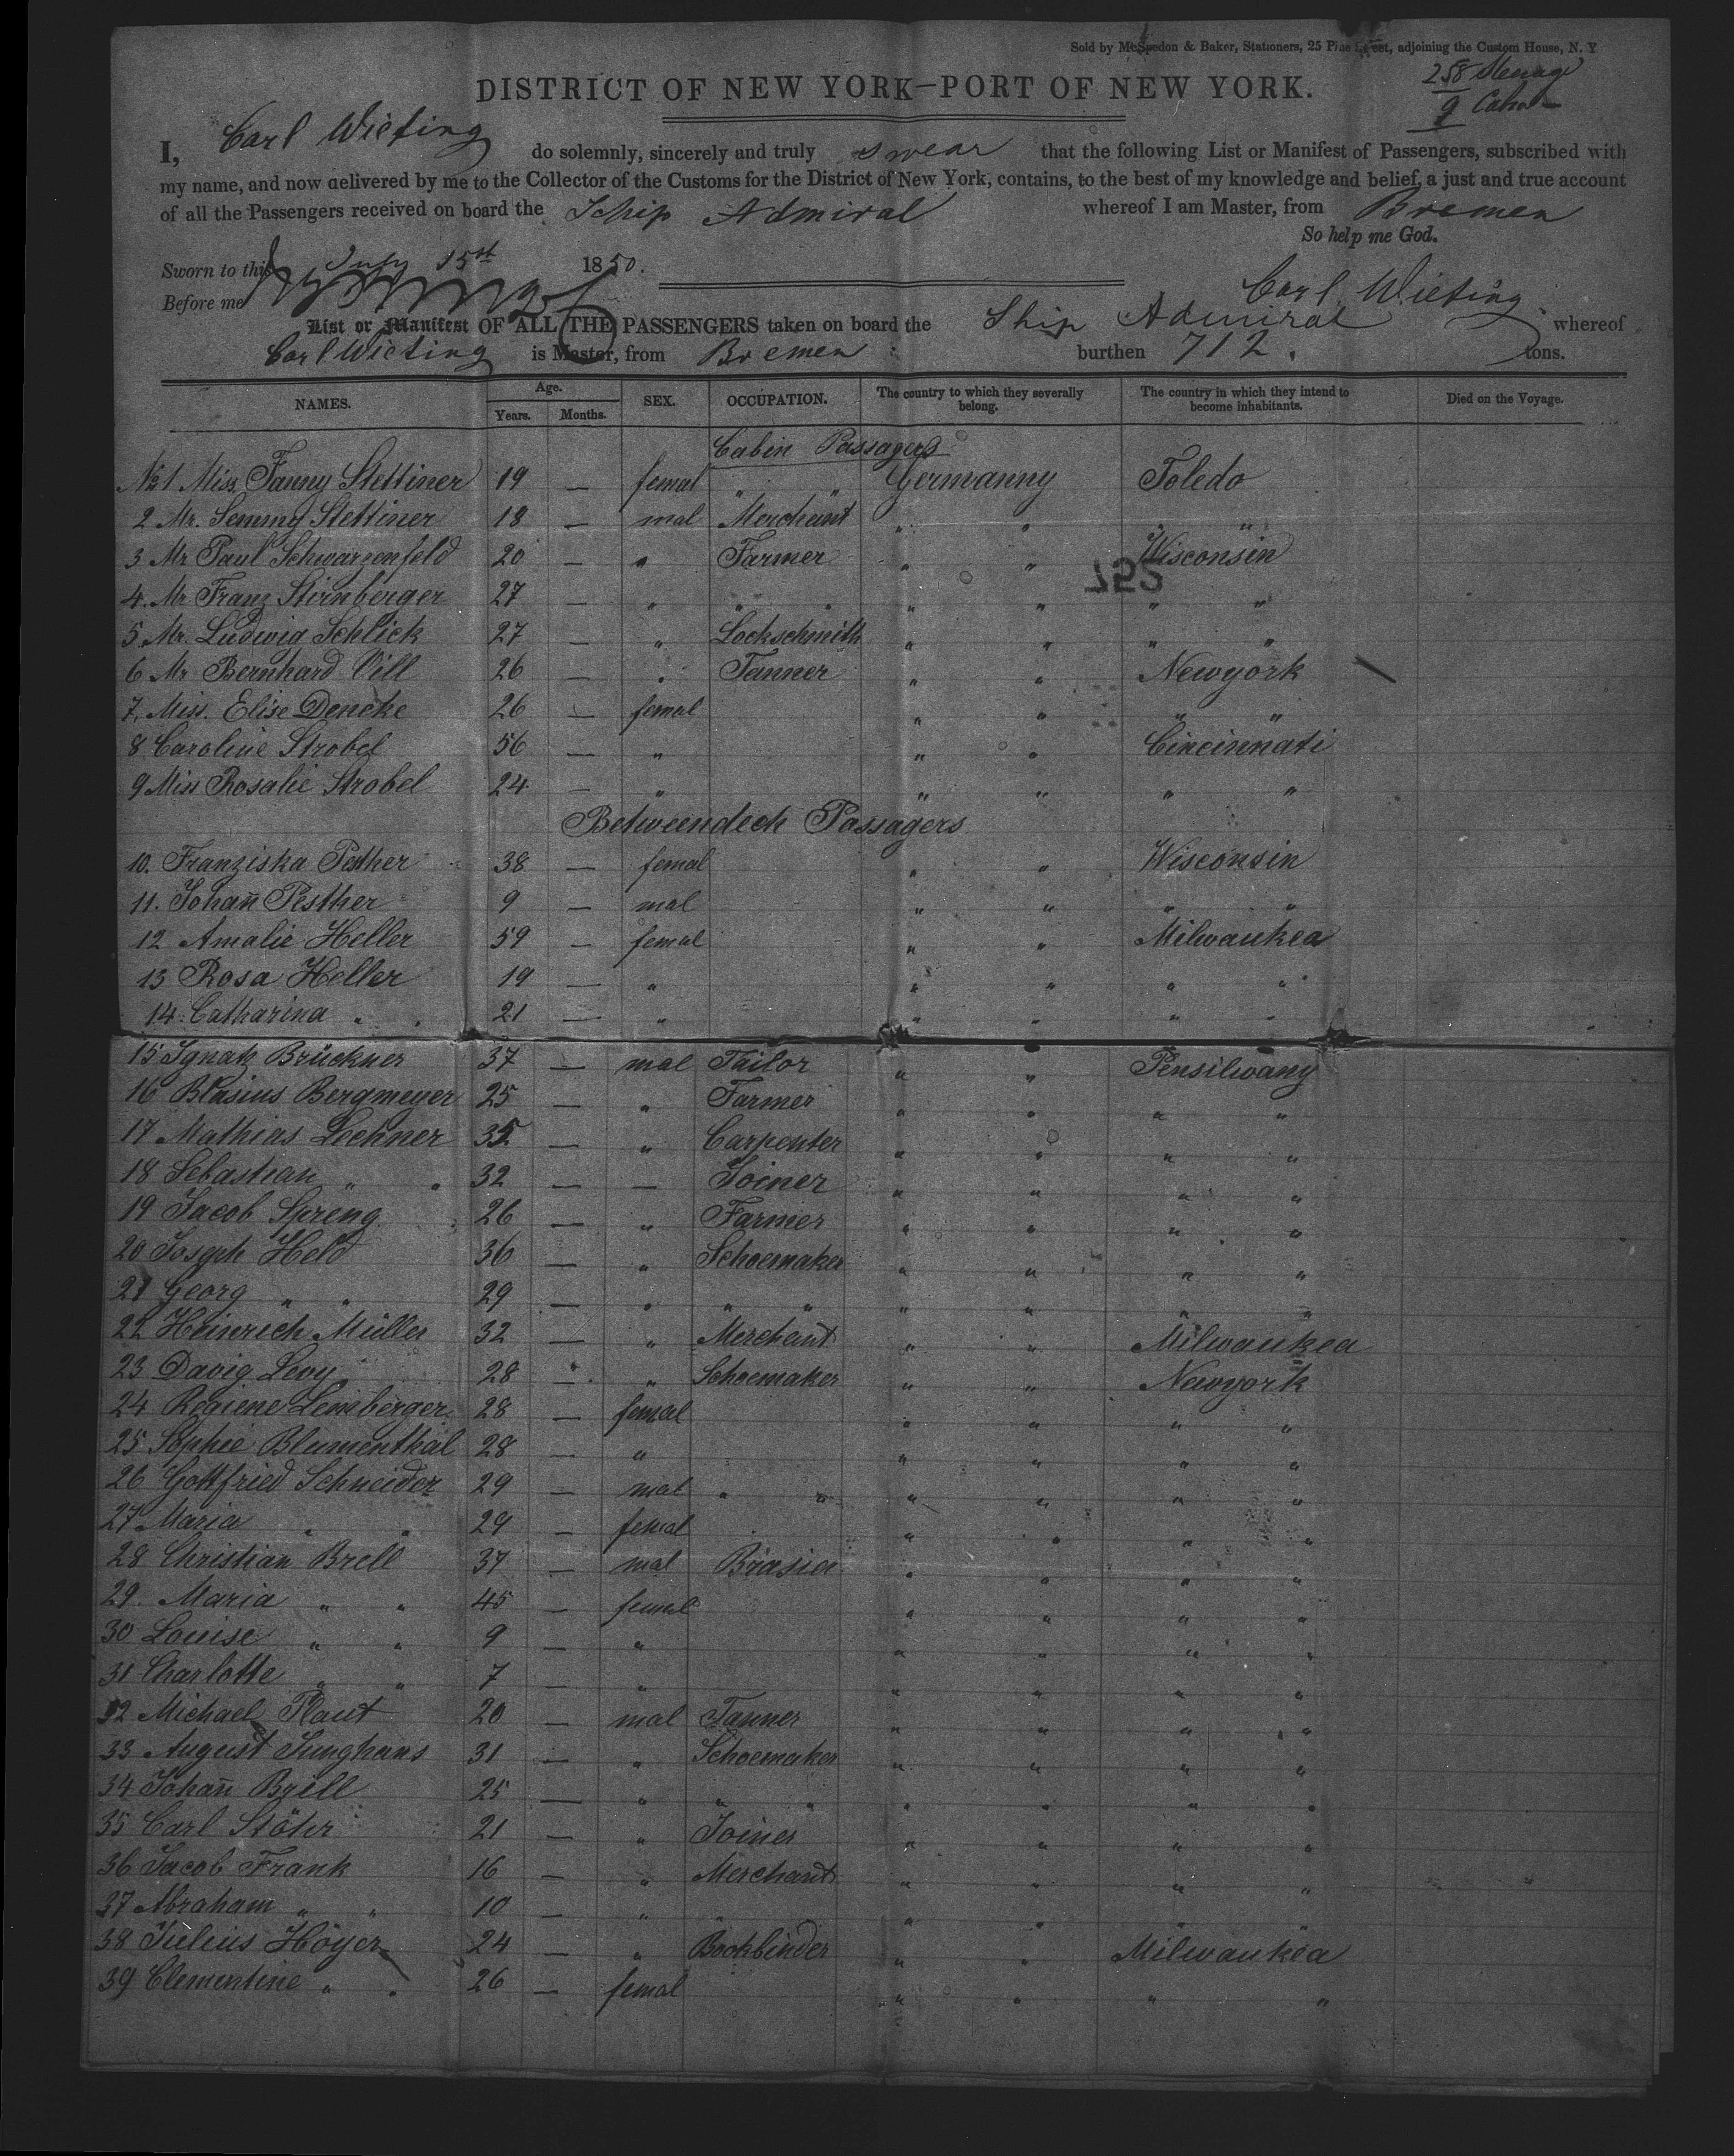 Sold by McSpedon & Baker, Stationers, 25 Pine Street, adjoining the Custom House, N. Y
258 Steerage
9 Cabin
DISTRICT OF NEW YORK—PORT OF NEW YORK.
I, Carl Wieting do solemnly, sincerely and truly swear that the following List or Manifest of Passengers, subscribed with
my name, and now delivered by me to the Collector of the Customs for the District of New York, contains, to the best of my knowledge and belief, a just and true account
of all the Passengers received on board the Schip Admiral whereof I am Master, from Bremen
So help me God.
Sworn to this July 15st 1850.
Carl Wieting
Before me
List or Manifest OF ALL THE PASSENGERS taken on board the Ship Admiral whereof
Carl Wieting is Master, from Bremen burthen 712. tons.
NAMES. Age. Years. Months. SEX. OCCUPATION. The country to which they severally belong. The country in which they intend to become inhabitants. Died on the Voyage.
Cabin Passagers
No 1 Miss. Fanny Stettiner 19 — femal " " Germanny Toledo
2 Mr. Semmy Stettiner 18 — mal Merchant " " " "
3 Mr Paul Schwarzenfeld 20 — " Farmer " " Wisconsin
752
4. Mr Franz Stirnberger 27 — " " " " " " "
5 Mr. Ludwig Schlick 27 — " Lockschmith " " " "
6 Mr Bernhard Vill 26 — " Tanner " " Newyork
7. Miss. Elise Dencke 26 — femal " " " "
8 Caroline Strobel 56 — " " " Cincinnati
9 Miss Rosalie Strobel 24 — " " " " "
Betweendeck Passagers
10. Franziska Pesther 38 — femal " " Wisconsin
11. Johan̄ Pesther 9 — mal " " " "
12 Amalie Heller 59 — femal " " Milwaukea
13 Rosa Heller 19 — " " " " "
14. Catharina " " 21 — " " " " "
15 Ignatz Brückner 37 — mal Tailor " " Pensilvany
16 Blasius Bergmeyer 25 — " Farmer " " " "
17 Mathias Lechner 35 — " Carpenter " " " "
18 Sebastian " " 32 — — Joiner " " " "
19 Jacob Spreng 26 — " Farmer " " " "
20 Joseph Held 36 — " Schoemaker " " " "
21 Georg " " 29 — " " " " " " "
22 Heinrich Müller 32 — " Merchant " " Milwaukea
23 Davig Levy 28 — " Schoemaker " " Newyork
24 Regiene Leinberger 28 — femal " " " "
25 Sophie Blumenthal 28 — " " " " "
26 Gottfried Schneider 29 — mal " " " " " "
27 Maria " " 29 — femal " " " "
28 Christian Brell 37 — mal " " " "
29. Maria " " 45 — femal " " " "
30 Louise " " 9 — " " " " "
31 Charlotte " " 7 — " " " " "
32 Michael Plaut 20 — mal Tanner " " " "
33 August Junghans 31 — " Schoemaker " " " "
34 Johan̄ Brell 25 — " " " " " " "
35 Carl Stöhr 21 — " Joiner " " " "
36 Jacob Frank 16 — " Merchant " " " "
37 Abraham " " 10 — " " " " " "
38 Julius Höyer 24 — " Bookbinder " " Milwaukea
39 Clementine " " 26 — femal " " " "